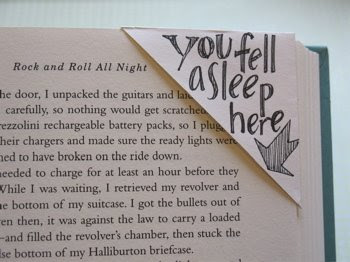 you fell
asleep
here
Rock and Roll All Night
he door, I unpacked the guitars and
carefully, so nothing would get scratched
ezzolini rechargeable battery packs, so I
heir chargers and made sure the ready lights were
ned to have broken on the ride down.
needed to charge for at least an hour before they
While I was waiting, I retrieved my revolver and
he bottom of my suitcase. I got the bullets out of
ven then, it was against the law to carry a loaded
—and filled the revolver's chamber, then stuck the
lse bottom of my Halliburton briefcase.